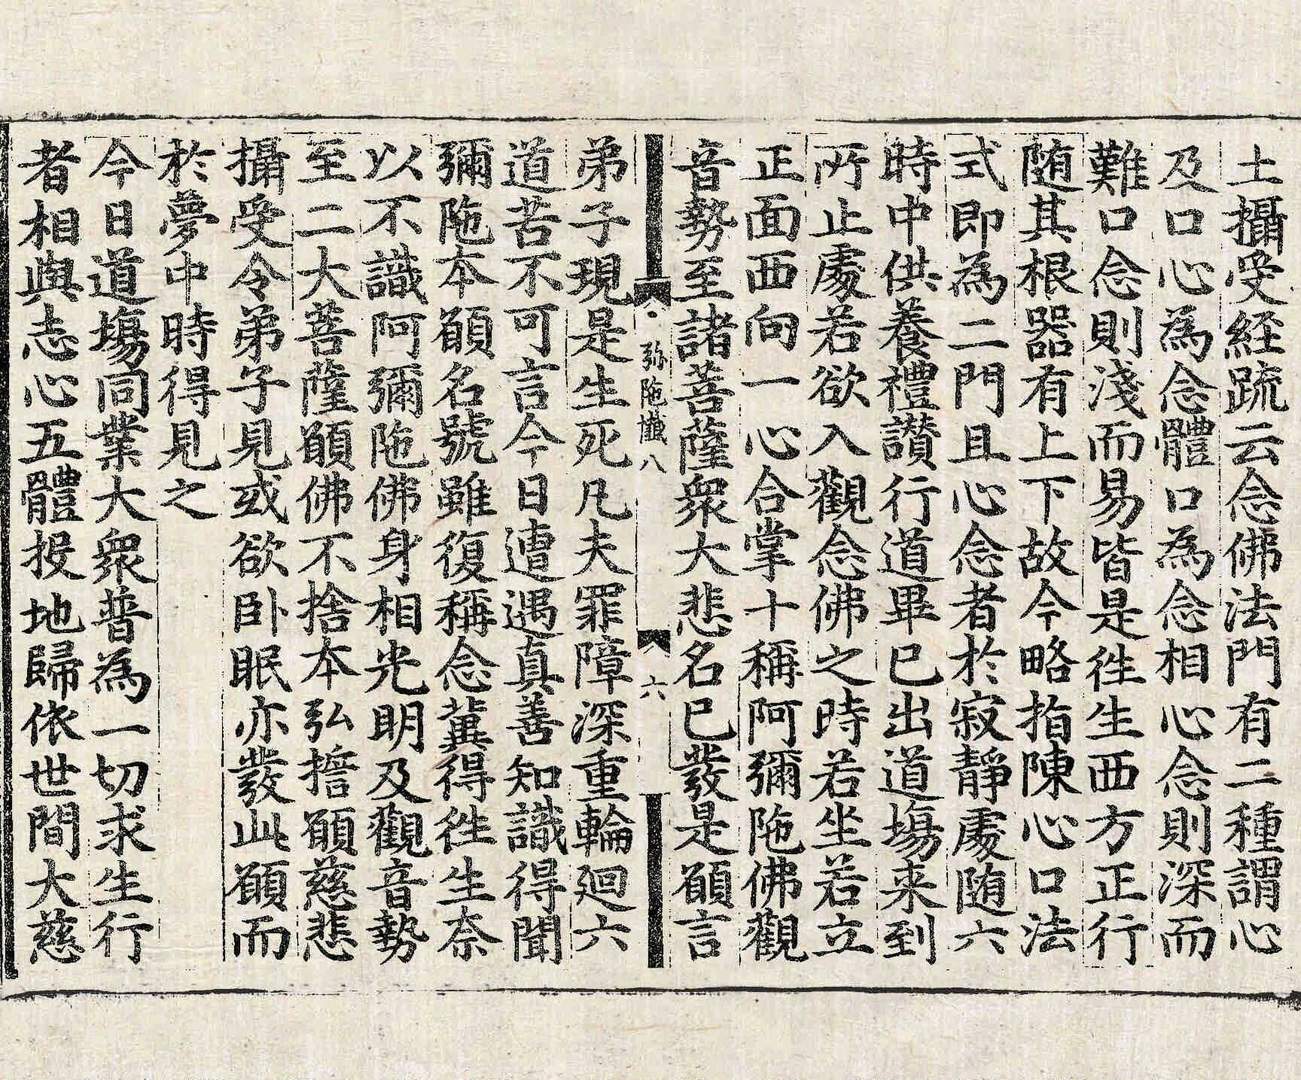 土攝受經疏云念佛法門有二種謂心
及口心爲念體口爲念相心念則深而
難口念則淺而易皆是徃生西方正行
随其根器有上下故今略指陳心口法
式即爲二門且心念者於寂靜處随六
時中供養禮讃行道畢已出道場来到
所止處若欲入觀念佛之時若坐若立
正面西向一心合掌十稱阿彌陁佛觀
音勢至諸菩薩衆大悲名已發是願言
弥陁懺八
六
弟子現是生死凡夫罪障深重輪廻六
道苦不可言今日遭遇真善知識得聞
彌陁本願名號雖復稱念冀得徃生奈
以不識阿彌陁佛身相光明及觀音勢
至二大菩薩願佛不捨本弘誓願慈悲
攝受令弟子見或欲卧眠亦發此願而
於夢中時得見之
今日道場同業大衆普爲一切求生行
者相與志心五體投地歸依世間大慈